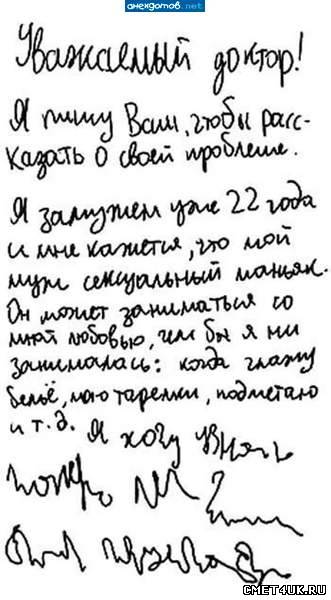 анекдотов.net
Уважаемый доктор!
Я пишу Вам, чтобы расс-
казать о своей проблеме.
Я замужем уже 22 года
и мне кажется, что мой
муж сексуальный маньяк.
Он может заниматься со
мной любовью, чем бы я ни
занималась: когда глажу
бельё, мою тарелки, подметаю
и т.д. Я хочу
CMET4UK.RU